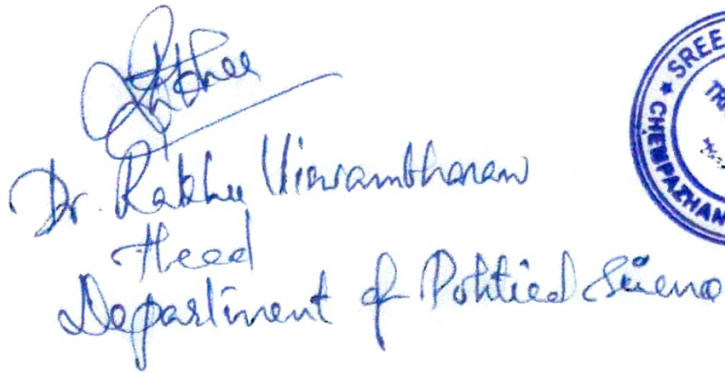 Rakhee
Dr. Rakhee Viswambharan
Head
Department of Political Science
SREE
CHEMPAZHAN